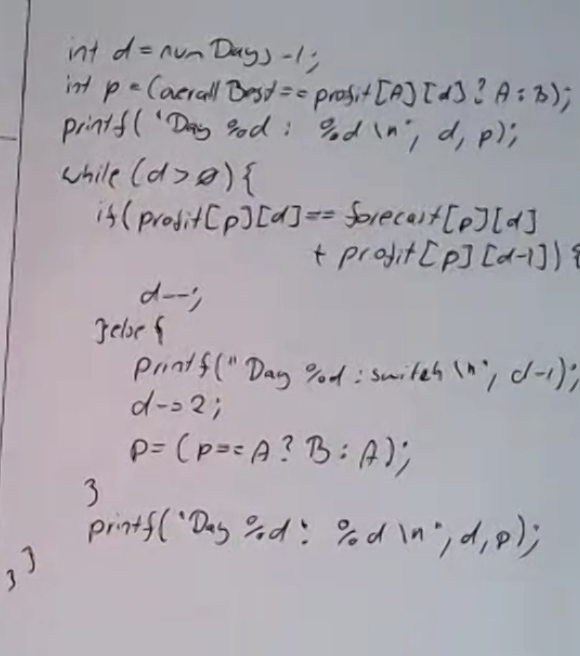 int d = numDays -1;
int p = (overallBest == profit[A][d] ? A : B);
printf("Day %d : %d \n", d, p);
while (d > 0) {
if (profit[p][d] == forecast[p][d]
+ profit[p][d-1]) {
d--;
} else {
printf("Day %d : switch \n", d-1);
d -= 2;
p = (p == A ? B : A);
}
printf("Day %d : %d \n", d, p);
}
}